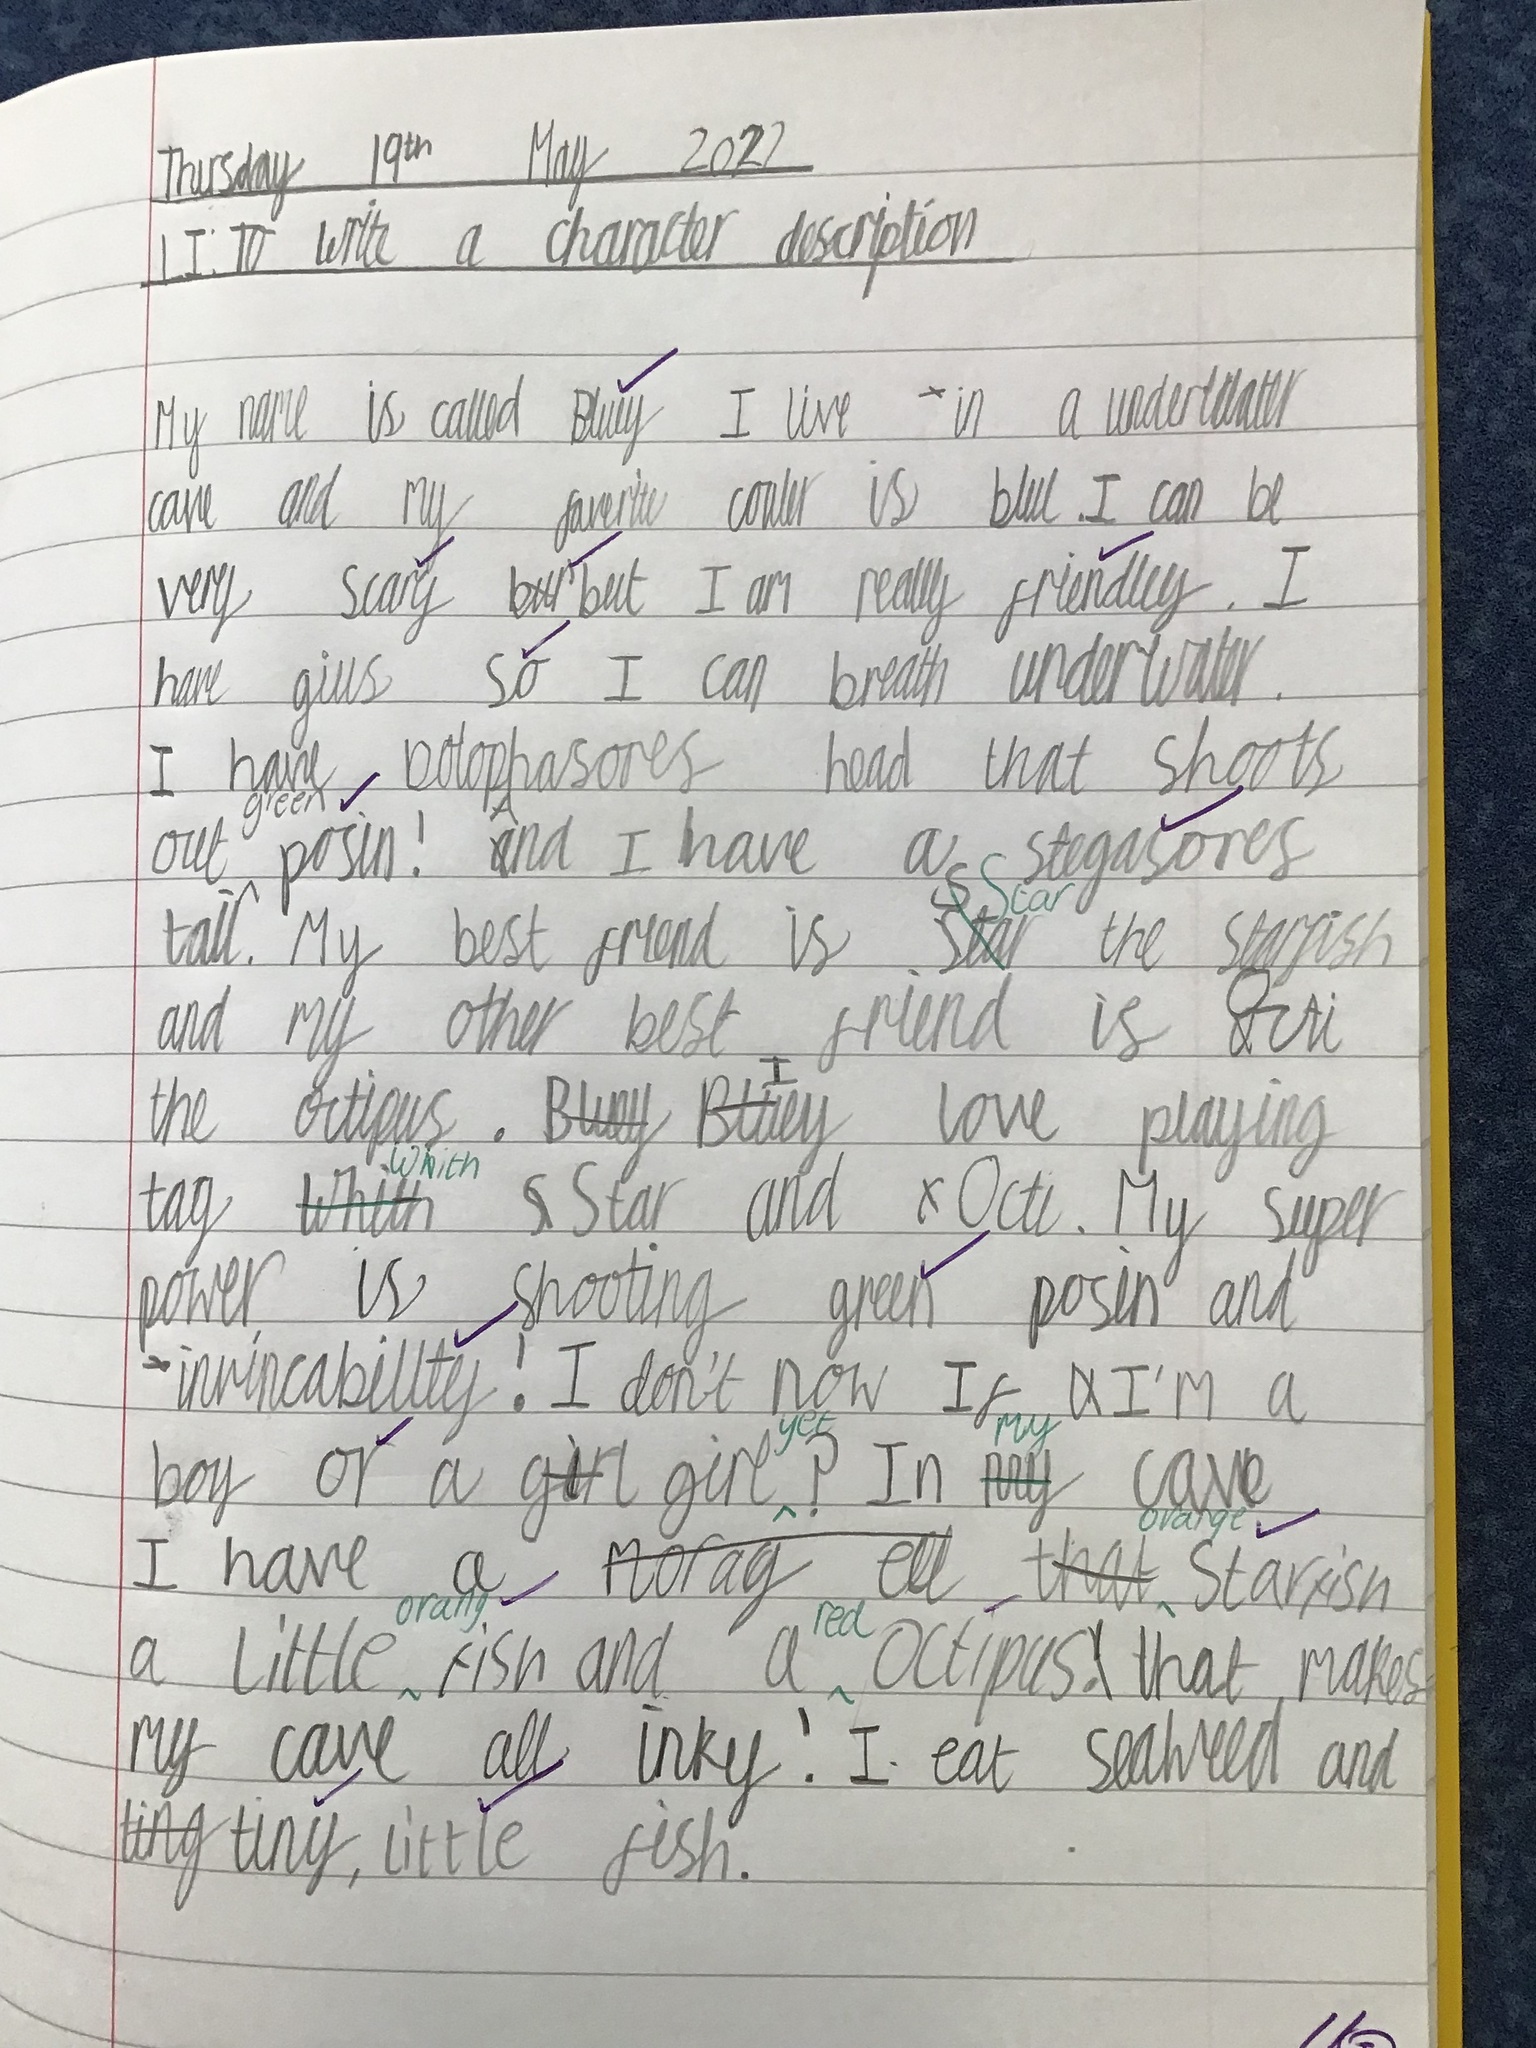 Thursday 19th May 2022
LI: To write a character description
My name is called Bluey I live in a underwater
cave and my faverite couler is blue. I can be
very scary but but I am really friendley. I
have gills so I can breath underwater.
I have Dolophasores head that shoots
out green posin! And I have a stegasores
tail. My best friend is Star Star the starfish
and my other best friend is Octi
the octipus. Bluey Bluey I love playing
tag Whith Whith Star and Octi. My super
power is shooting green posin and
invincabillty! I don't now If I'm a
boy or a girl girl yet? In my my cave
I have a Morag ell that orange Starfish
a little orang fish and a red Octipus! that makes
my cave all inky! I eat seaweed and
ting tiny, little fish.